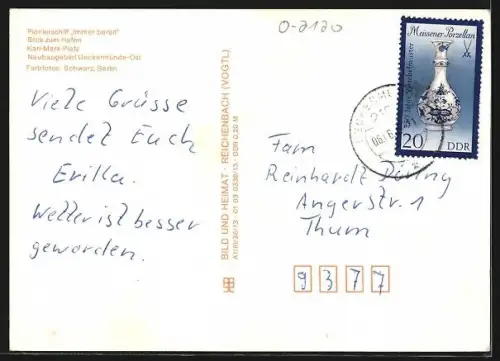 Pionierschiff „Immer bereit"
Blick zum Hafen
Karl-Marx-Platz
Neubaugebiet Ueckermünde-Ost
Farbfotos: Schwarz, Berlin
Viele Grüsse
sendet Euch
Erika.
Wetter ist besser
geworden.
BILD UND HEIMAT · REICHENBACH (VOGTL)
01 03 0338/13 DDR 0,20 M
0-2120
Meissener Porzellan
20 DDR
Fam
Reinhardt
Angerstr. 1
Thum
9377